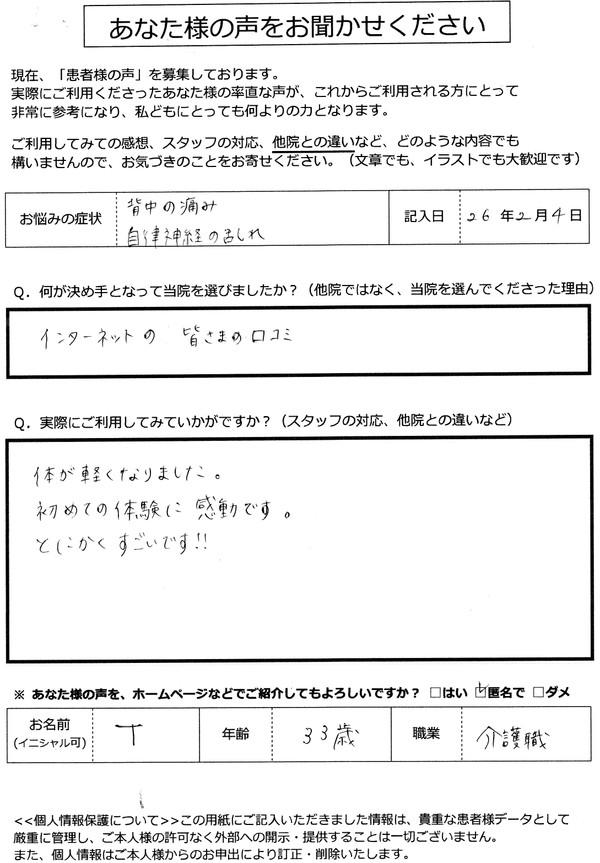 あなた様の声をお聞かせください
現在、「患者様の声」を募集しております。
実際にご利用くださったあなた様の率直な声が、これからご利用される方にとって
非常に参考になり、私どもにとっても何よりの力となります。
ご利用してみての感想、スタッフの対応、他院との違いなど、どのような内容でも
構いませんので、お気づきのことをお寄せください。（文章でも、イラストでも大歓迎です）
お悩みの症状 背中の痛み 記入日 26年2月4日
自律神経の乱れ
Q．何が決め手となって当院を選びましたか？（他院ではなく、当院を選んでくださった理由）
インターネットの 皆さまの口コミ
Q．実際にご利用してみていかがですか？（スタッフの対応、他院との違いなど）
体が軽くなりました。
初めての体験に感動です。
とにかくすごいです!!
※ あなた様の声を、ホームページなどでご紹介してもよろしいですか？ □はい ☑匿名で □ダメ
お名前 T 年齢 33歳 職業 介護職
(イニシャル可)
<<個人情報保護について>>この用紙にご記入いただきました情報は、貴重な患者様データとして
厳重に管理し、ご本人様の許可なく外部への開示・提供することは一切ございません。
また、個人情報はご本人様からのお申出により訂正・削除いたします。